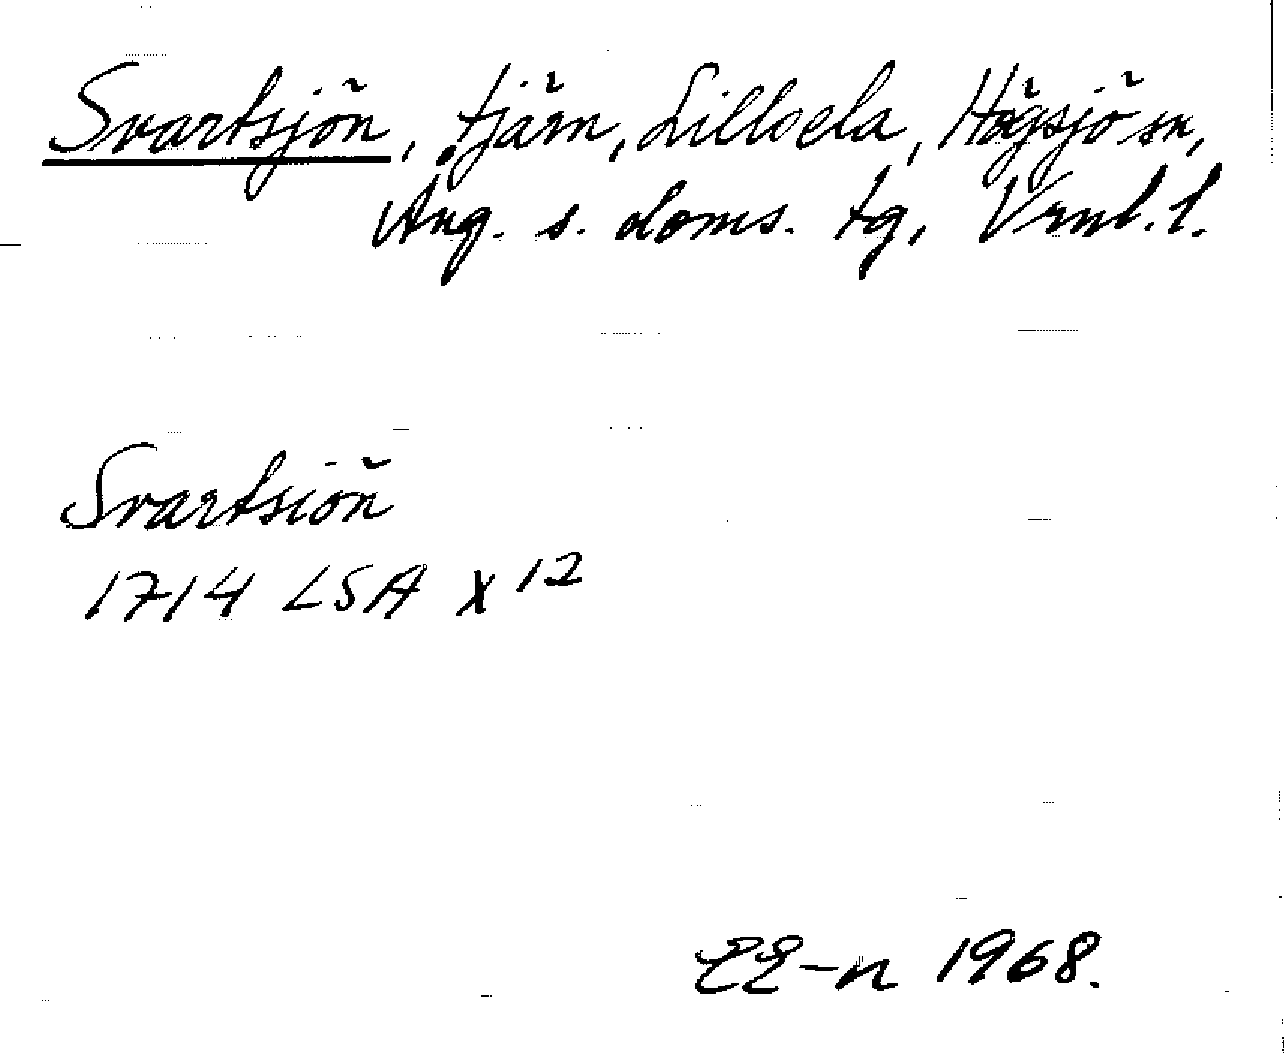 Svartsjön, tjärn, Lilloela, Högsjö sn,
Ång. s. doms. tg, Vrnl. l.
Svartsiön
1714 LSA X 12
EE-n 1968.